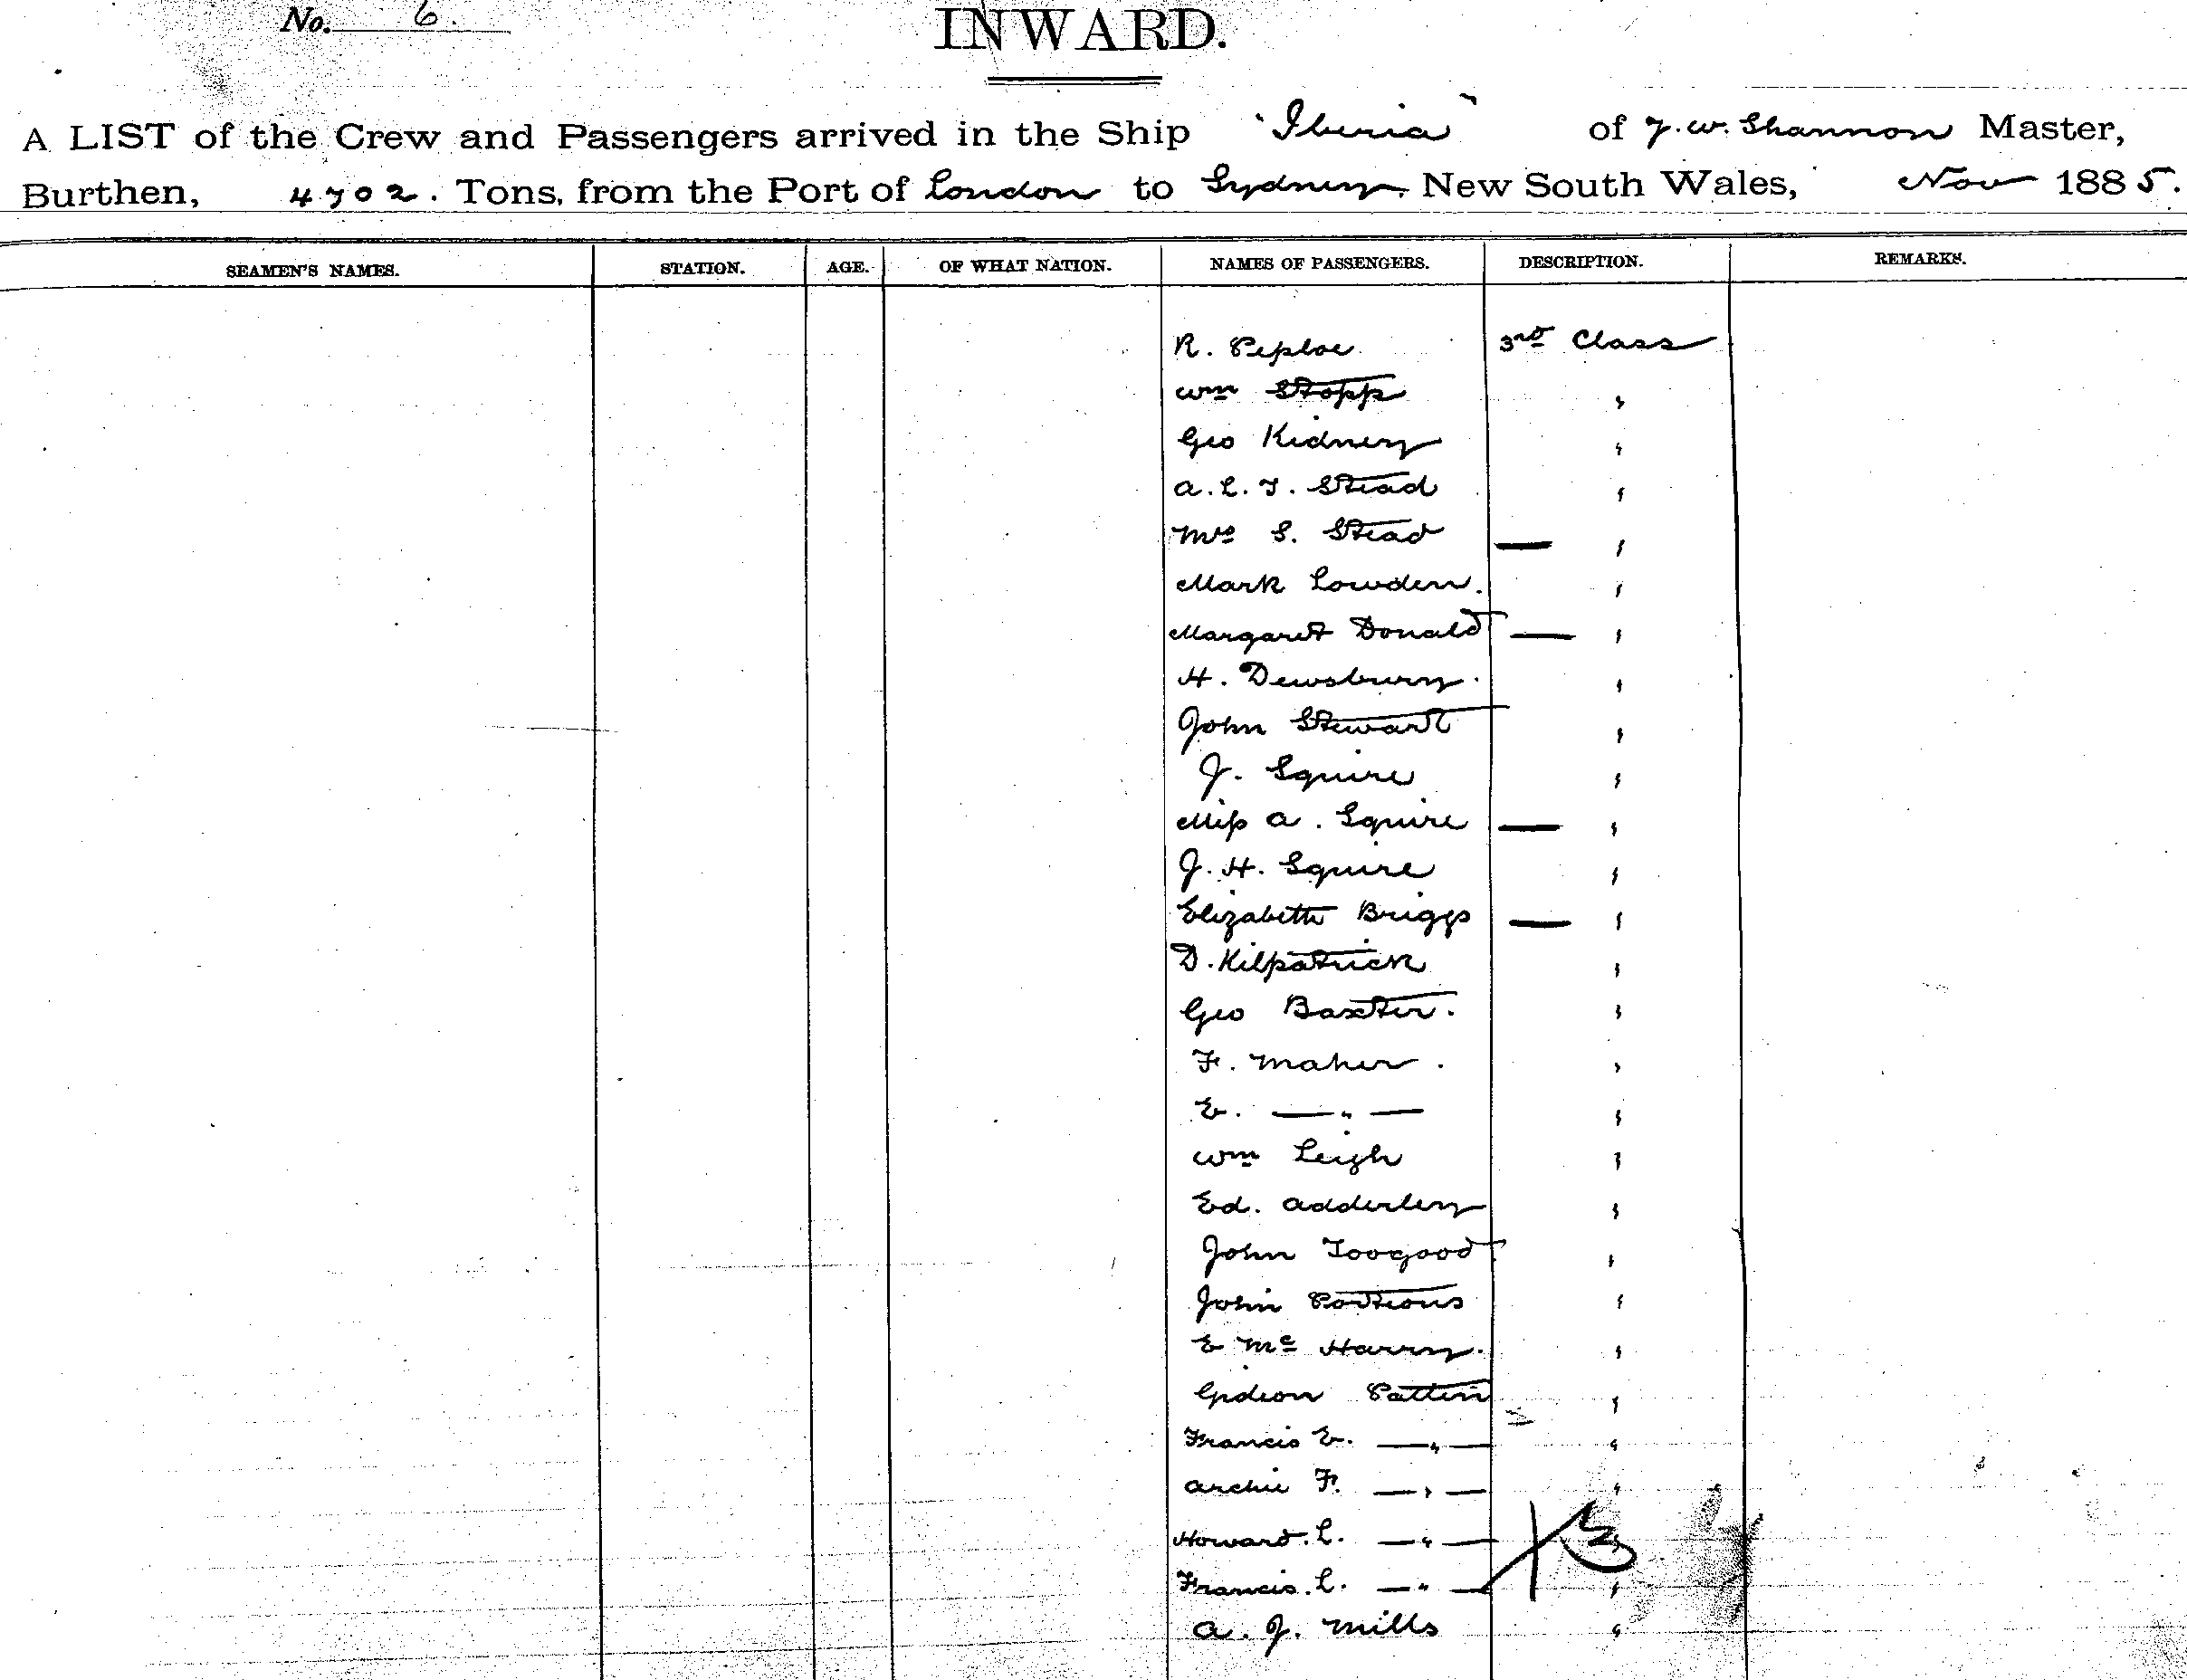 No. 6.
INWARD.
A LIST of the Crew and Passengers arrived in the Ship "Iberia" of J. W. Shannon Master,
Burthen, 4702. Tons, from the Port of London to Sydney, New South Wales, Nov 1885.
SEAMEN'S NAMES. STATION. AGE. OF WHAT NATION. NAMES OF PASSENGERS. DESCRIPTION. REMARKS.
R. Peploe 3rd Class
Wm Stopp "
Geo Kidney "
A. L. T. Stead "
Mrs S. Stead — "
Mark Lowden. "
Margaret Donald — "
H. Dewsbury. "
John Stewart "
J. Squire "
Miss A. Squire — "
J. H. Squire "
Elizabeth Briggs — "
D. Kilpatrick "
Geo Baxter. "
F. Maher. "
E. — " — "
Wm Leigh "
Ed. Adderley "
John Toogood "
John Porteous "
E Mc Harry. "
Gideon Patten "
Francis E. — " — "
Archie F. — " — "
Howard. L. — " — "
Francis. L. — " — "
A. J. Mills "